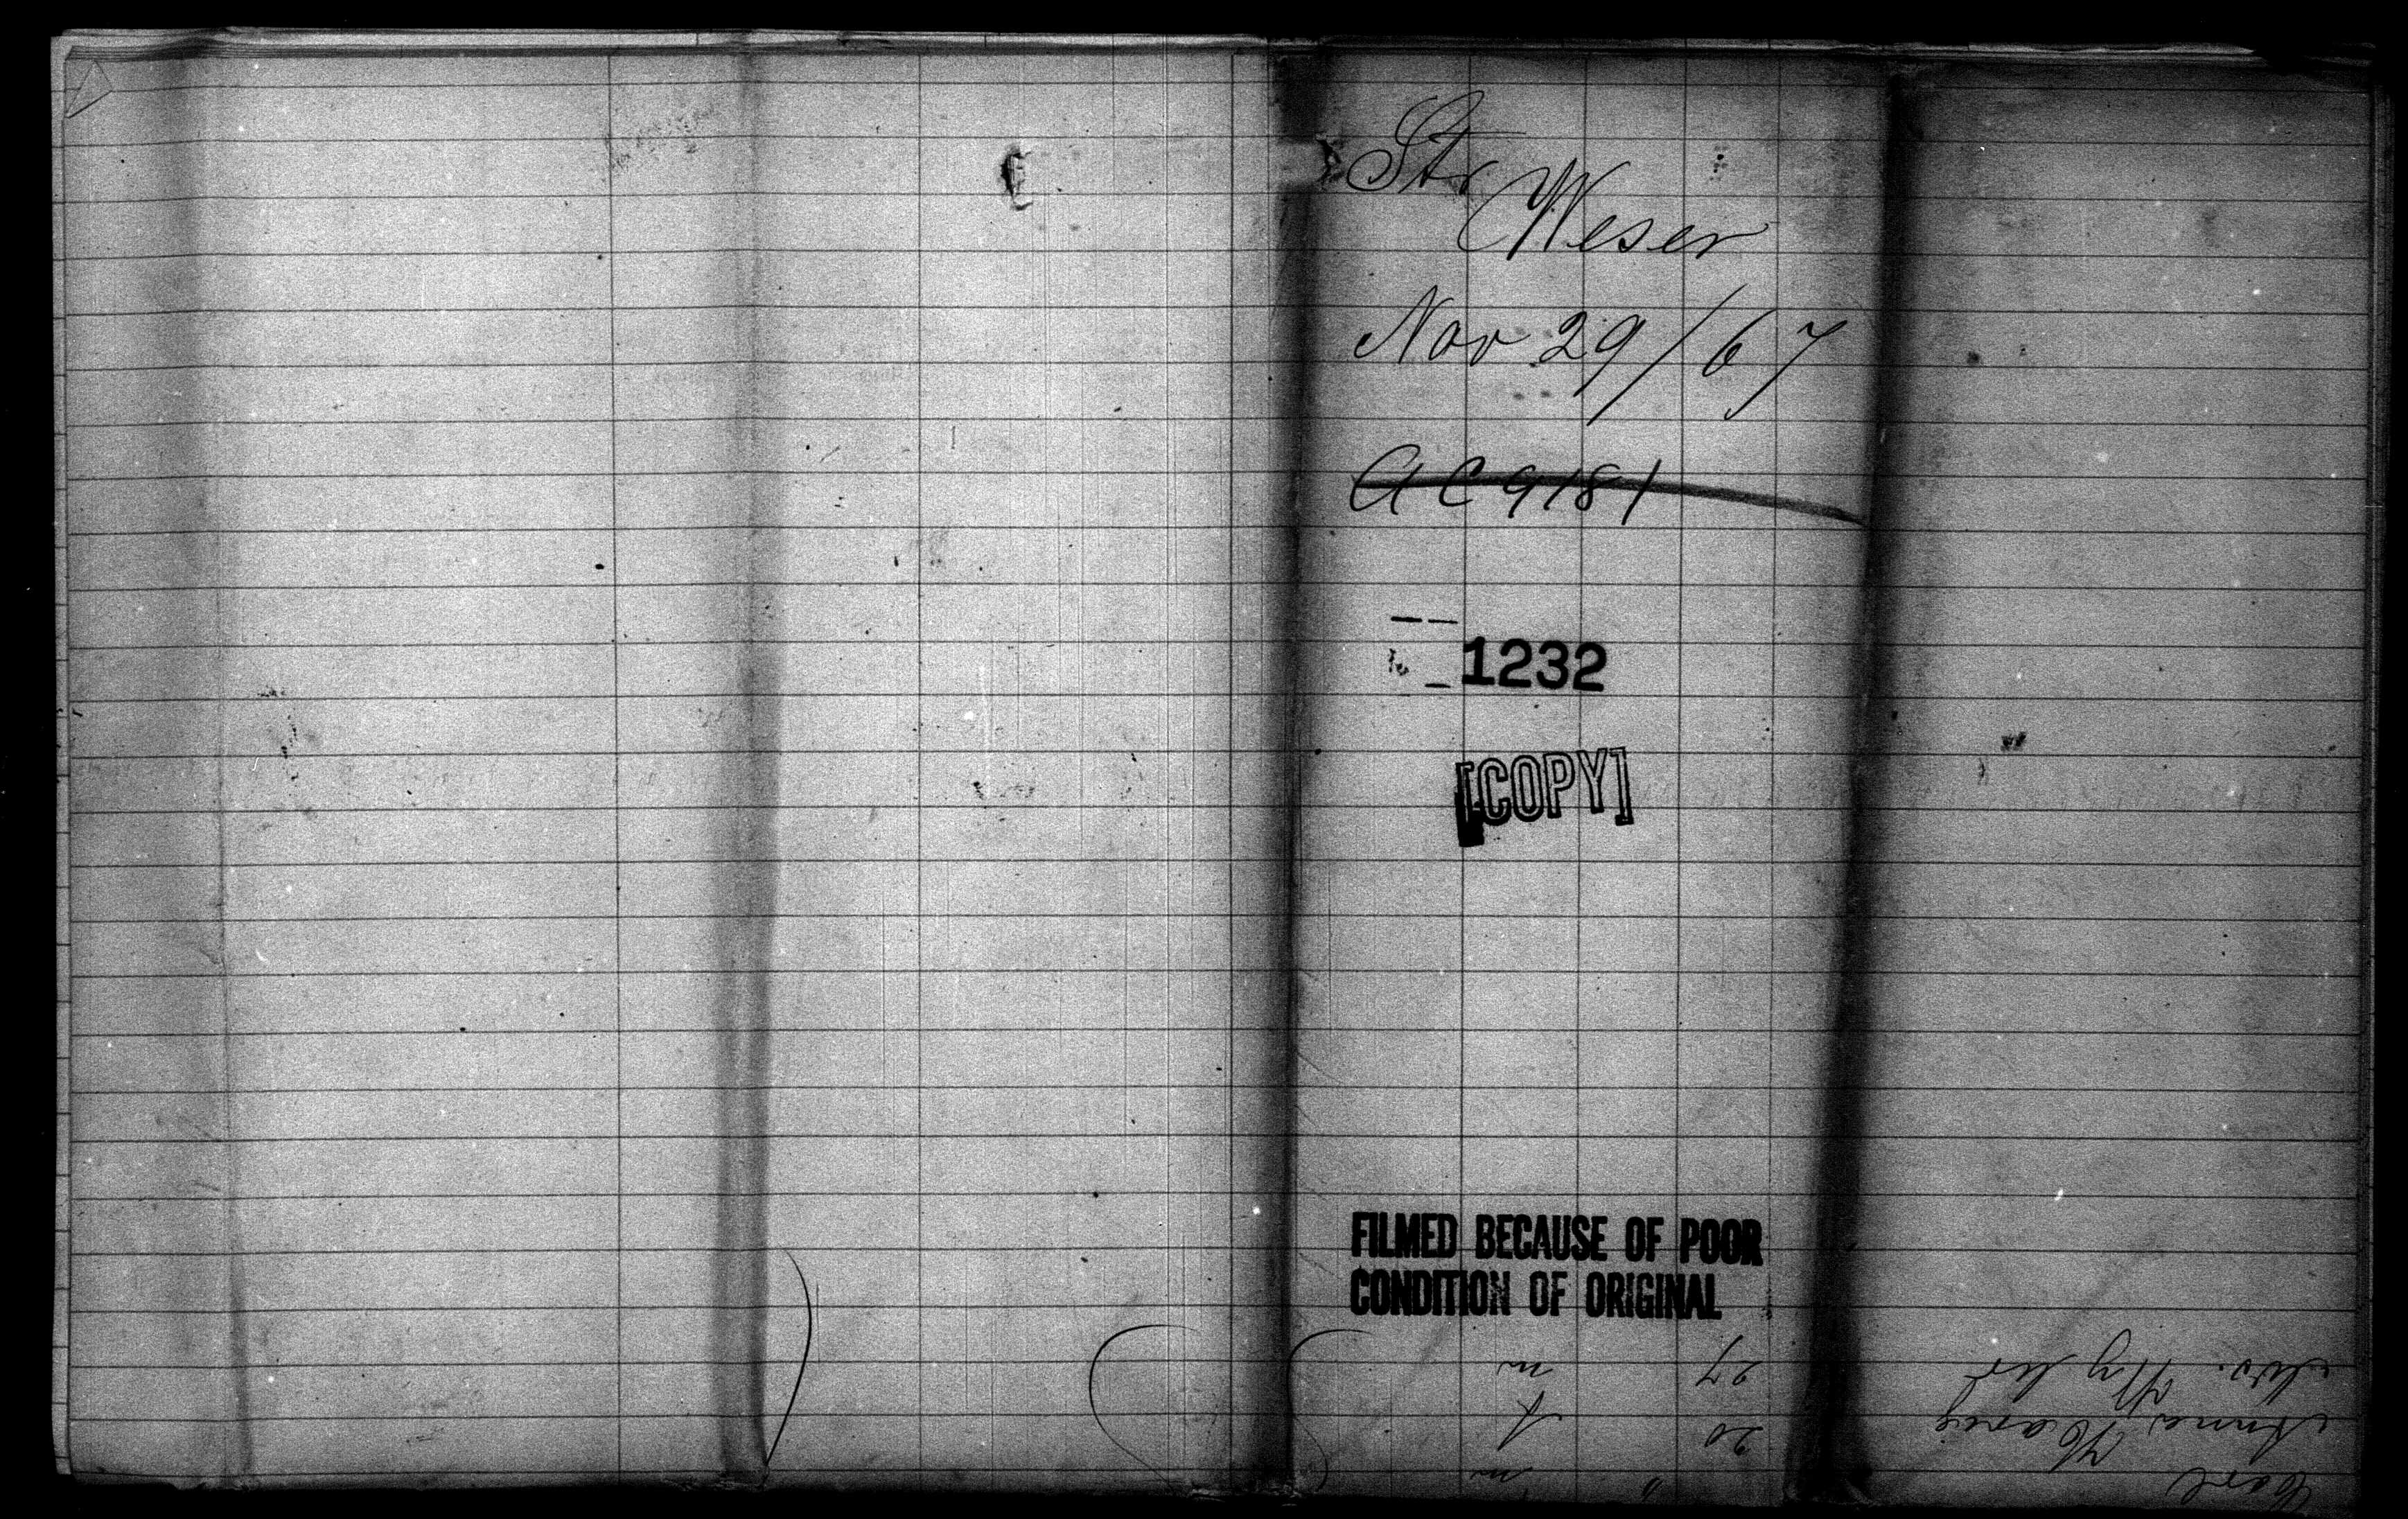 Str
Weser
Nov 29/67
AC 9181
1232
[COPY]
FILMED BECAUSE OF POOR
CONDITION OF ORIGINAL
Carl m
Anna 20 f
27 m